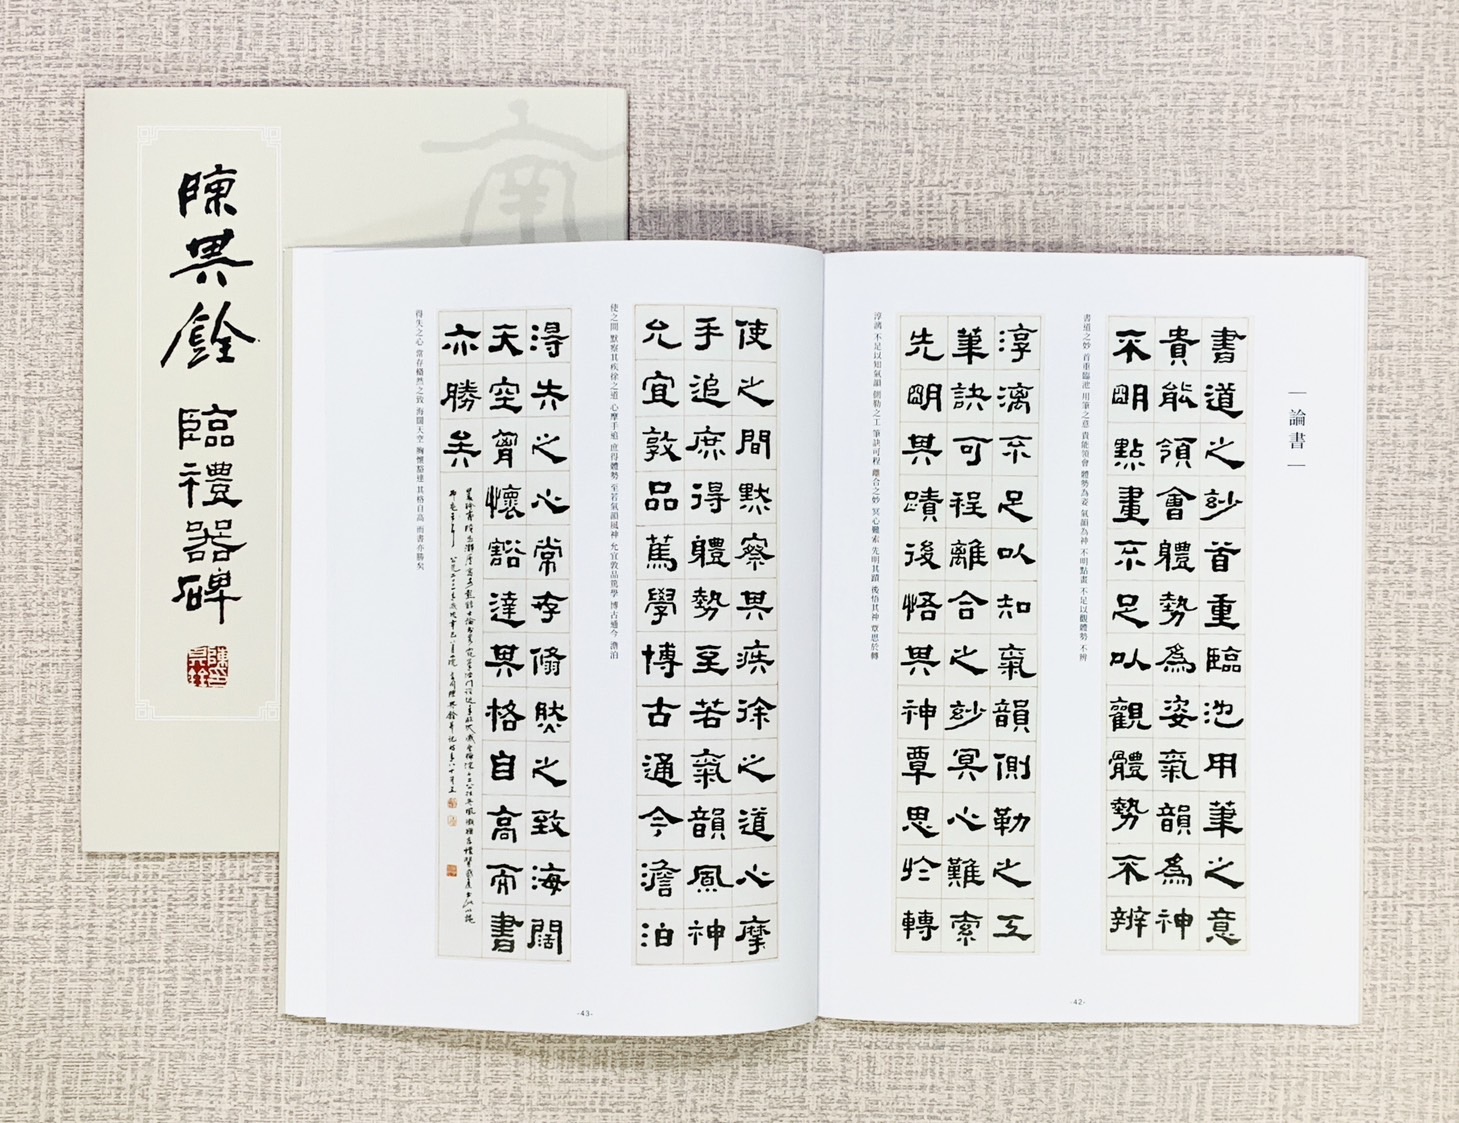 陳其銓 臨禮器碑
論書
書道之妙首重臨池用筆之意
貴能領會體勢為姿氣韻為神
不明點畫不足以觀體勢不辨
書道之妙 首重臨池 用筆之意 貴能領會 體勢為姿 氣韻為神 不明點畫 不足以觀體勢 不辨
淳漓不足以知氣韻側勒之工
筆訣可程離合之妙冥心難索
先明其蹟後悟其神覃思於轉
淳漓 不足以知氣韻 側勒之工 筆訣可程 離合之妙 冥心難索 先明其蹟 後悟其神 覃思於轉
-42-
使之間默察其疾徐之道心摩
手追庶得體勢至若氣韻風神
允宜敦品篤學博古通今澹泊
使之間 默察其疾徐之道 心摩手追 庶得體勢 至若氣韻風神 允宜敦品篤學 博古通今 澹泊
得失之心常存翛然之致海闊
天空胸懷豁達其格自高而書
亦勝矣
得失之心 常存翛然之致 海闊天空 胸懷豁達 其格自高 而書亦勝矣
-43-